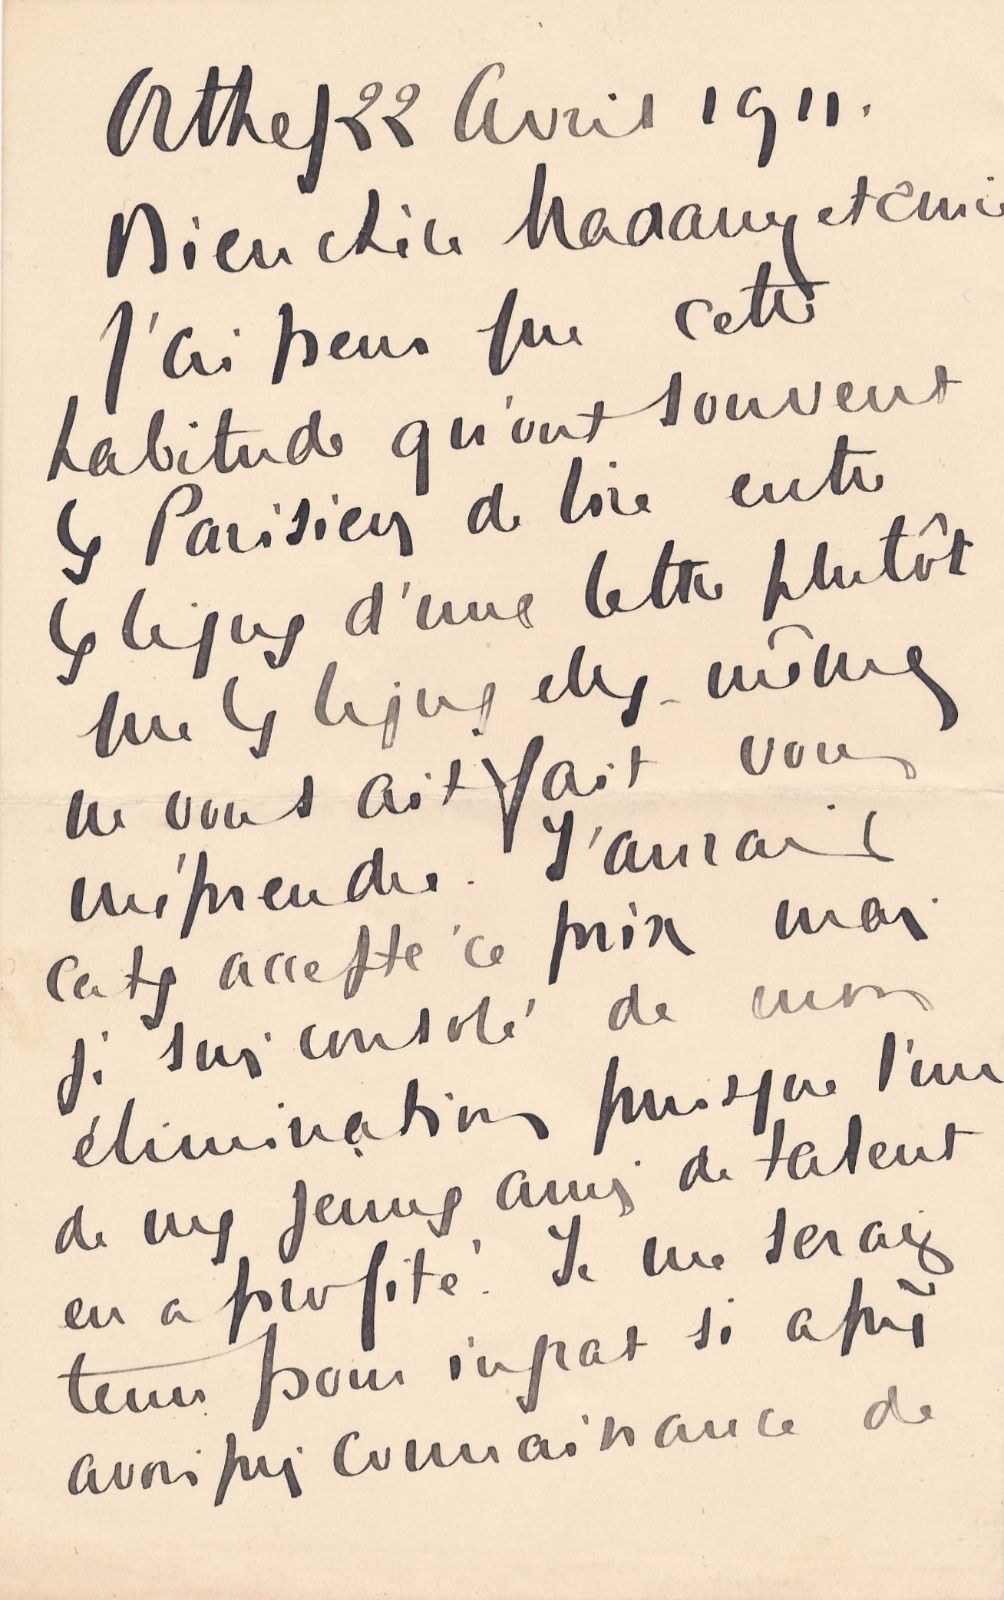 Orthez 22 Avril 1911.
Bien chère Madame et amie
J'ai peur que cette
habitude qu'ont souvent
les Parisiens de lire entre
les lignes d'une lettre plutôt
que les lignes elles-mêmes
ne vous ait fait vous
méprendre. J'aurais
certes accepté ce prix mais
je suis consolé de mon
élimination puisque l'un
de mes jeunes amis de talent
en a profité. Je me serais
tenu pour ingrat si après
avoir pris connaissance de